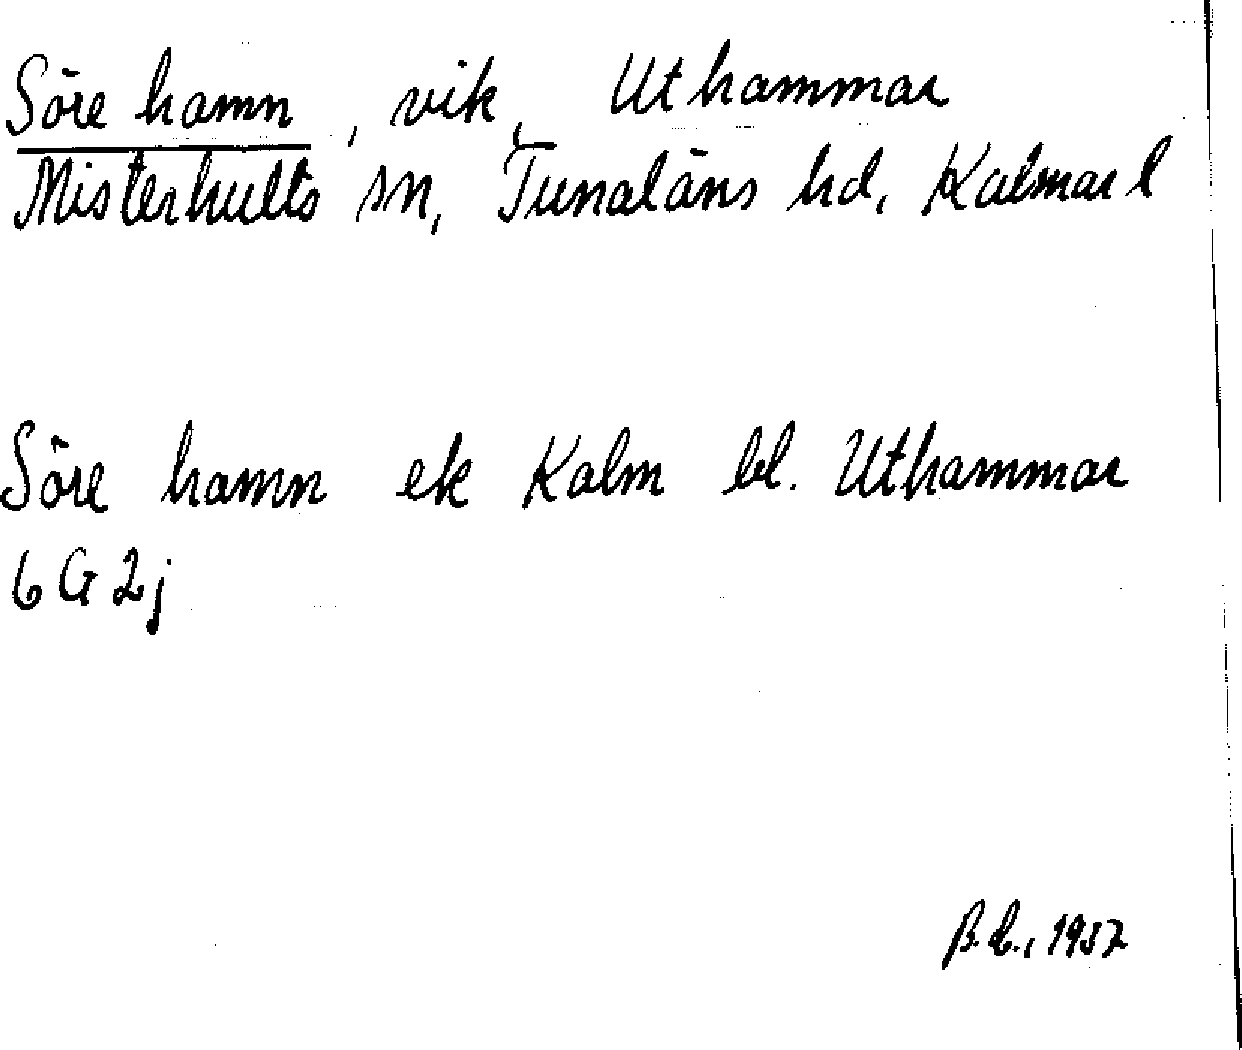 Söre hamn, vik, Uthammar
Misterhults sn, Tunaläns hd, Kalmar l
Söre hamn ek Kalm bl. Uthammar
6G2j
1957